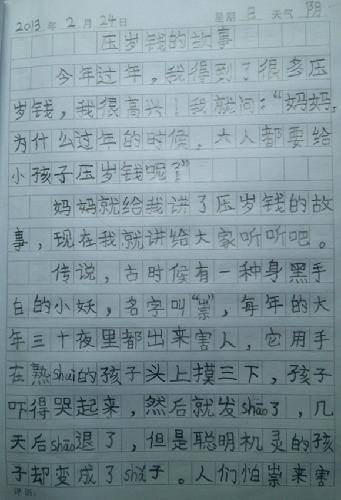 2013年2月24日 星期日 天气阴
压岁钱的故事
今年过年,我得到了很多压
岁钱,我很高兴!我就问:“妈妈,
为什么过年的时候,大人都要给
小孩子压岁钱呢?”
妈妈就给我讲了压岁钱的故
事,现在我就讲给大家听听吧。
传说,古时候有一种身黑手
白的小妖,名字叫“祟”,每年的大
年三十夜里都出来害人,它用手
在熟shuì的孩子头上摸三下,孩子
吓得哭起来,然后就发shāo了,几
天后shāo退了,但是聪明机灵的孩
子却变成了shǎ子。人们怕祟来害
评语: